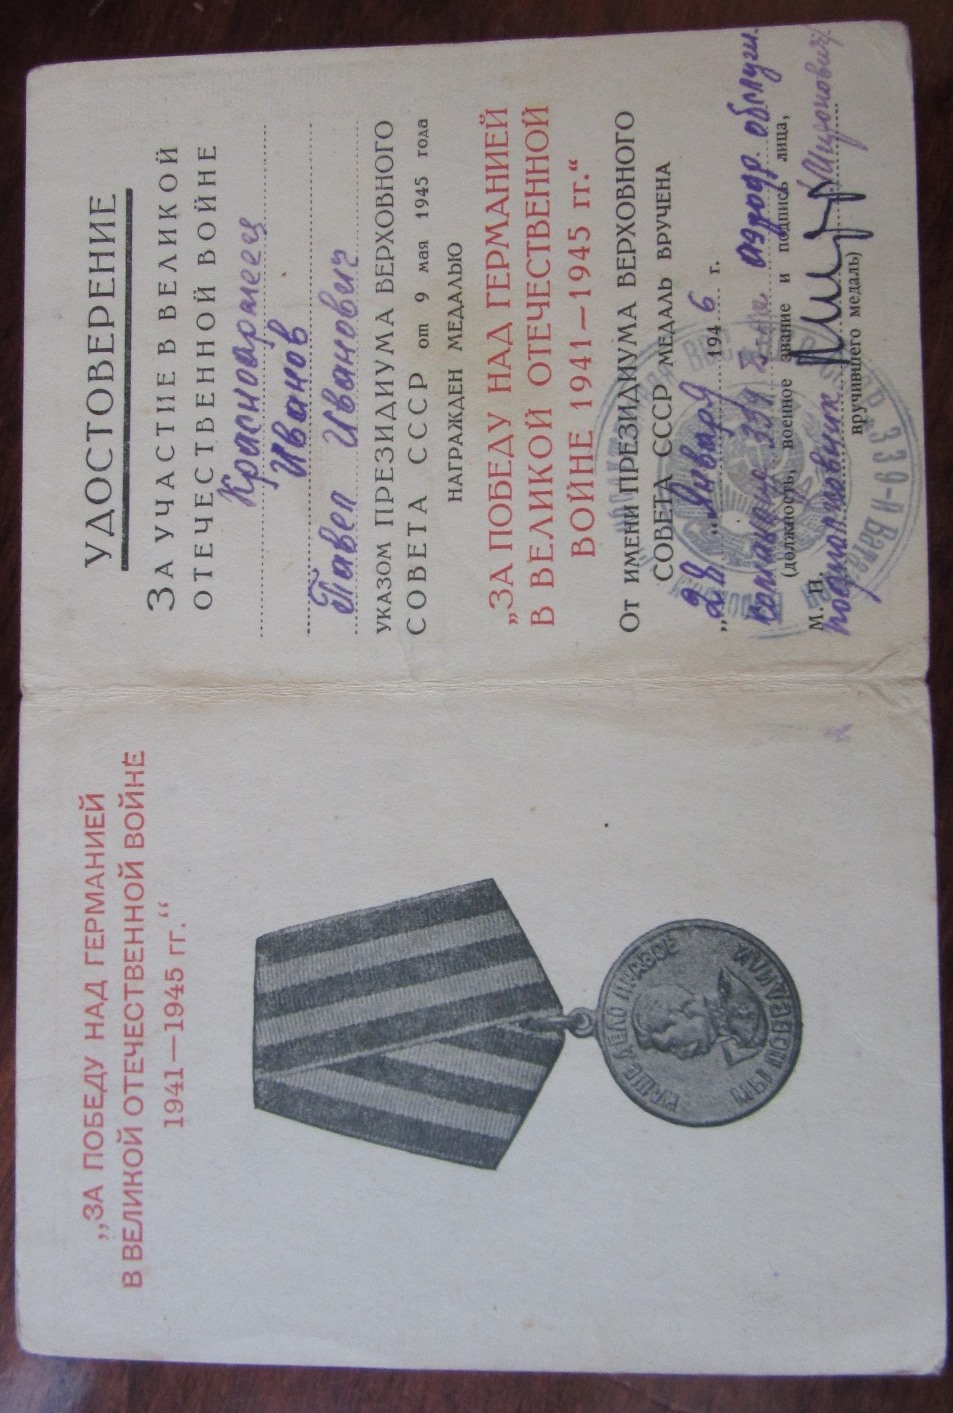 „ЗА ПОБЕДУ НАД ГЕРМАНИЕЙ
В ВЕЛИКОЙ ОТЕЧЕСТВЕННОЙ ВОЙНЕ
1941—1945 гг.“
НАШЕ ДЕЛО ПРАВОЕ
МЫ ПОБЕДИЛИ
УДОСТОВЕРЕНИЕ
ЗА УЧАСТИЕ В ВЕЛИКОЙ
ОТЕЧЕСТВЕННОЙ ВОЙНЕ
Красноармеец
Иванов
Павел Иванович
УКАЗОМ ПРЕЗИДИУМА ВЕРХОВНОГО
СОВЕТА СССР от 9 мая 1945 года
НАГРАЖДЕН МЕДАЛЬЮ
„ЗА ПОБЕДУ НАД ГЕРМАНИЕЙ
В ВЕЛИКОЙ ОТЕЧЕСТВЕННОЙ
ВОЙНЕ 1941—1945 гг.“
От ИМЕНИ ПРЕЗИДИУМА ВЕРХОВНОГО
СОВЕТА СССР МЕДАЛЬ ВРУЧЕНА
„28„ Января 1946 г.
командир 339 аэродр. обслуж.
(должность, военное звание и подпись лица,
М. П.
подполковник /Миронович/
вручившего медаль)